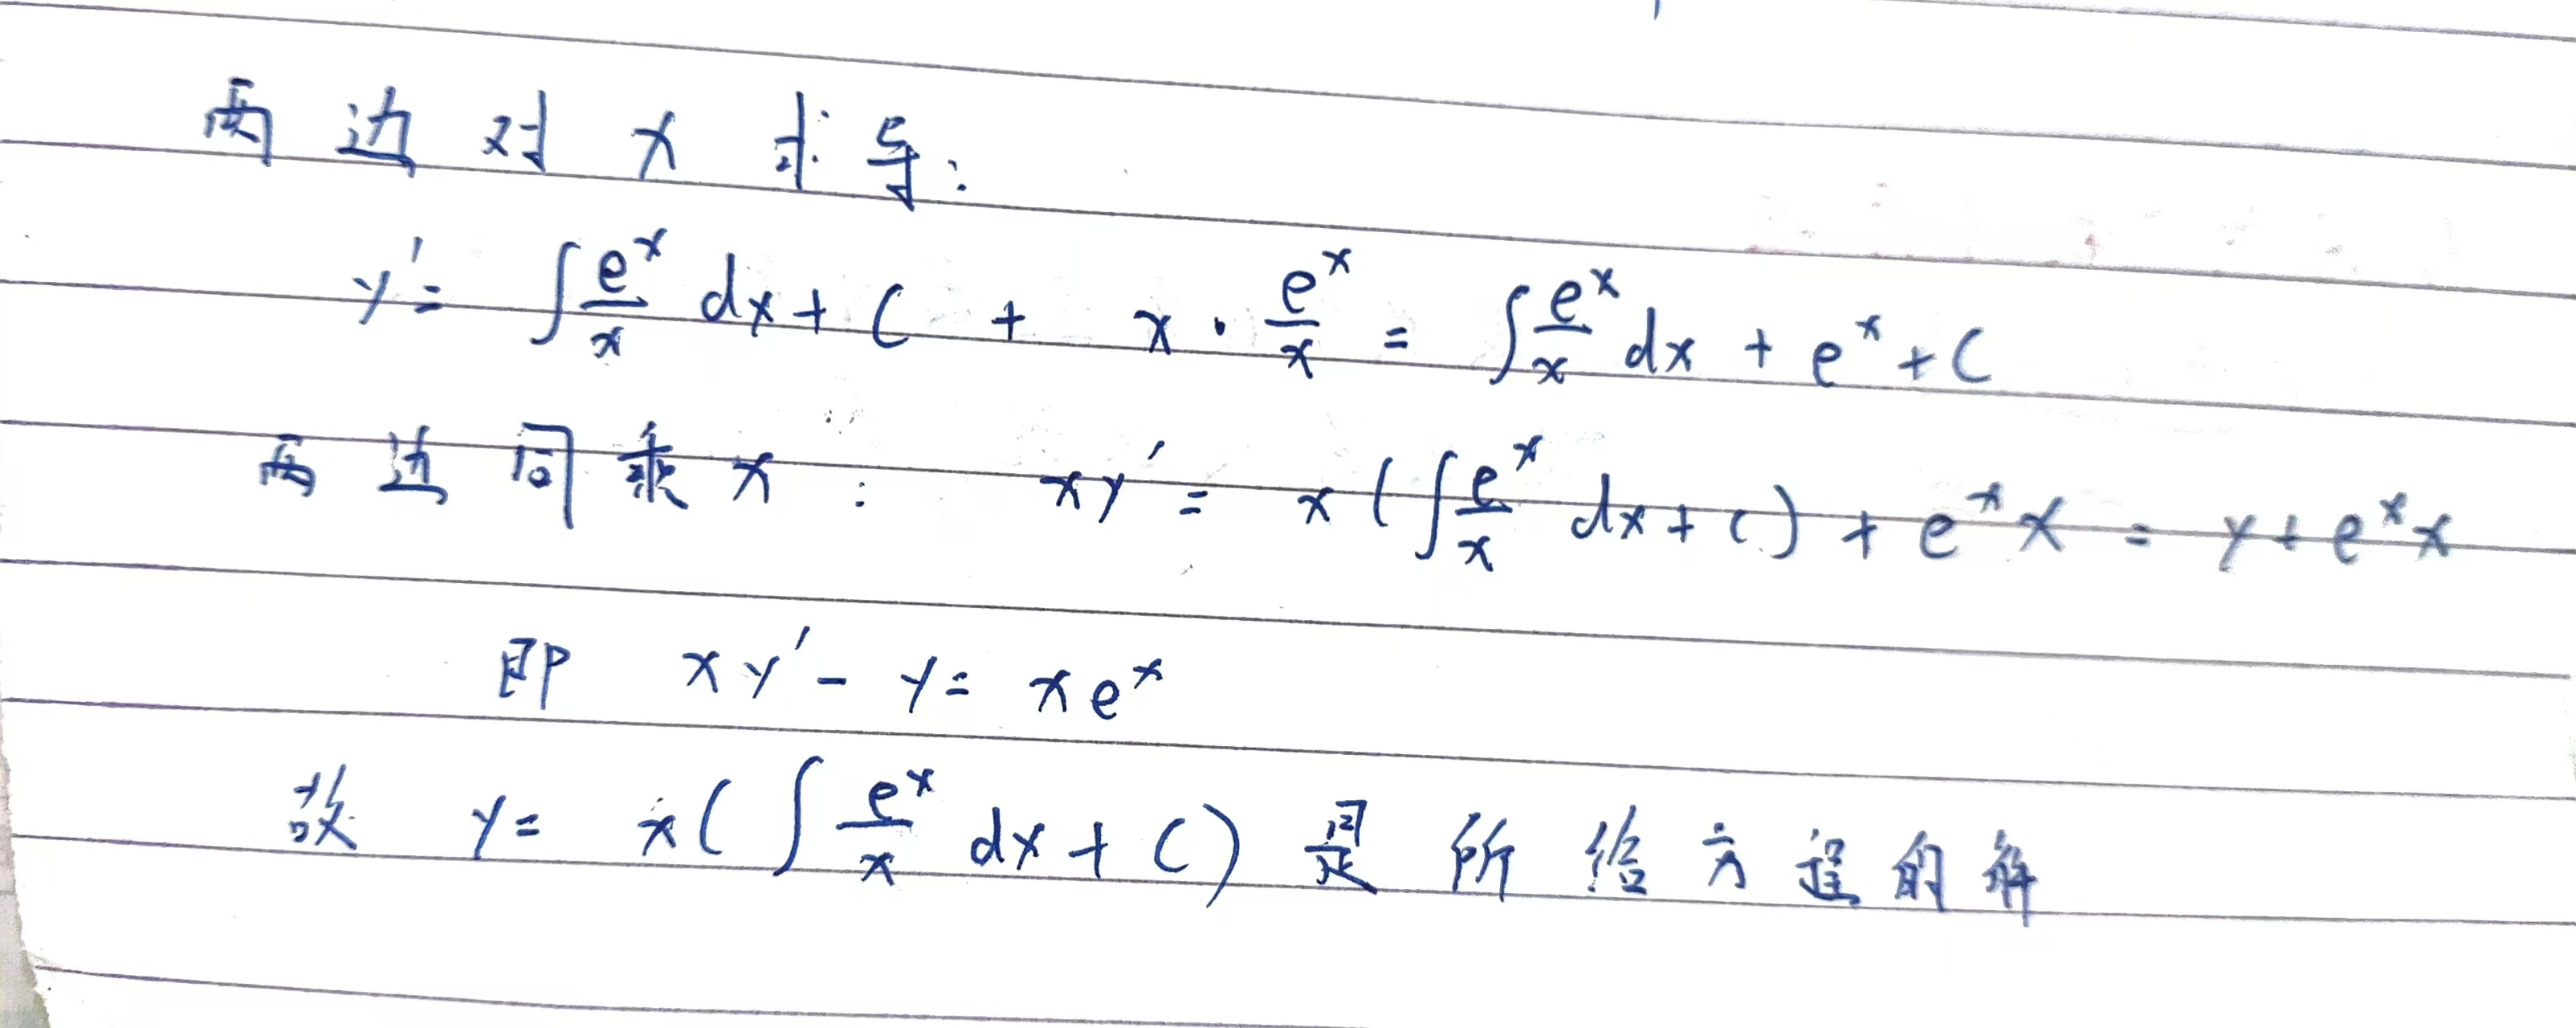 两边对x求导:
y' = ∫ e^x/x dx + C + x · e^x/x = ∫ e^x/x dx + e^x + C
两边同乘x: xy' = x(∫ e^x/x dx + C) + e^x x = y + e^x x
即 xy' - y = xe^x
故 y = x(∫ e^x/x dx + C) 是所给方程的解